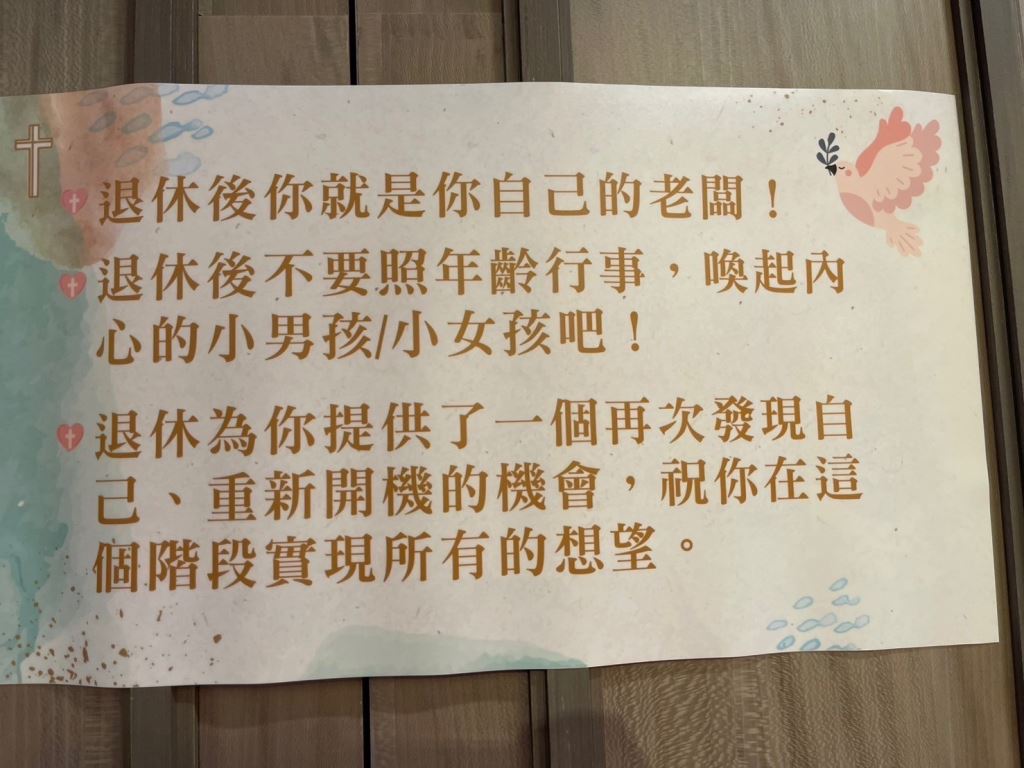 退休後你就是你自己的老闆！
退休後不要照年齡行事，喚起內
心的小男孩/小女孩吧！
退休為你提供了一個再次發現自
己、重新開機的機會，祝你在這
個階段實現所有的想望。